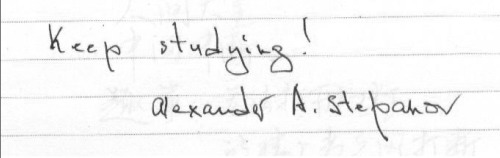 Keep studying!
Alexander A. Stepanov